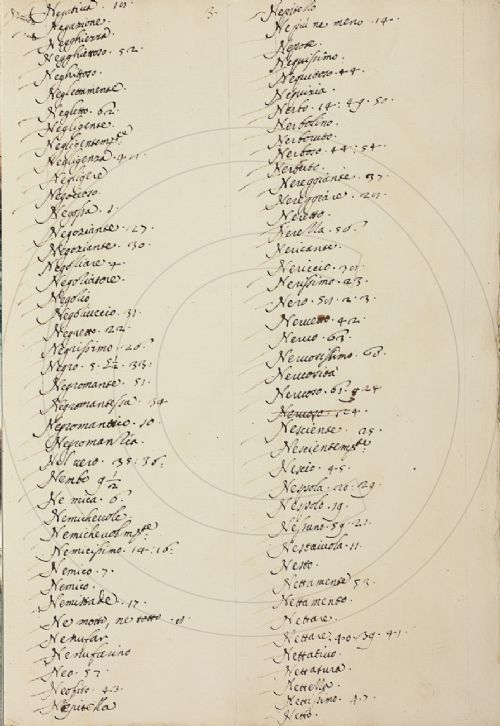 Negativa
Negazione.
Negghienza.
Negghiettoso. 52.
Neghittoso.
Neglettamente.
Negletto. 62.
Negligente.
Negligentem.te
Negligenza
Negligere
Negozioso.
Negossa. 1.
Negoziante. 27.
Negoziante. 30.
Negoziare. 4.
Negoziatore.
Negozio
Negoziuccio. 31.
Negretto. 22.
Negrissimo. 26.
Negro. 5.
Negromante. 51.
Negromantessa. 54
Negromantico. 10.
Negromanzia.
Nel vero. 35: 36:
Nembo 9 1/2
Ne mica. 6.
Nemichevole.
Nemichevolm.te
Nemicissimo. 14: 16:
Nemico. 7.
Nemico.
Nemistade. 17.
Ne motto, ne totto.
Nenufar.
Nenufarino
Neo. 57
Neofito. 43.
Nepitella
Nepitello
Ne più ne meno. 14.
Nepote.
Nequissimo.
Nequitoso. 44.
Nequizia.
Nerbo. 14: 49. 50.
Nerbolino.
Nerboruto.
Nerboso. 44: 54.
Nerbuto.
Nereggiante. 37.
Nereggiare.
Neretto.
Nerella. 56.
Nericante.
Nericcio.
Nerissimo. 23.
Nero.
Nervetto. 42.
Nervo. 63.
Nervosissimo. 6.
Nervosità
Nervoso. 61. 9 24
Nervoso. 24.
Nesciente. 25.
Nescientem.te
Nescio. 45.
Nespola.
Nespolo. 19.
Nessuno. 59. 21.
Nestaiuola. 11.
Nesto.
Nettamente 53.
Nettamento.
Nettare.
Nettare. 40. 39. 41.
Nettativo.
Nettatura.
Nettezza.
Nettissimo. 47.
Netto